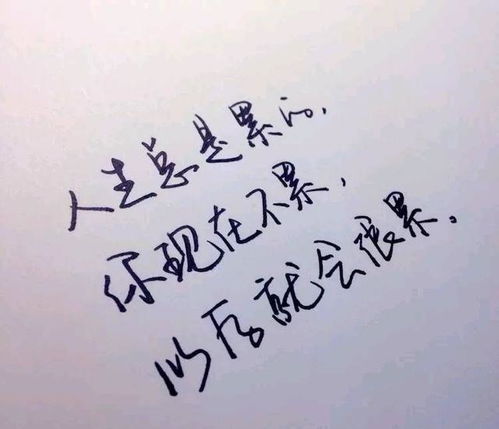 人生总是累的.
你现在不累.
以后就会很累.